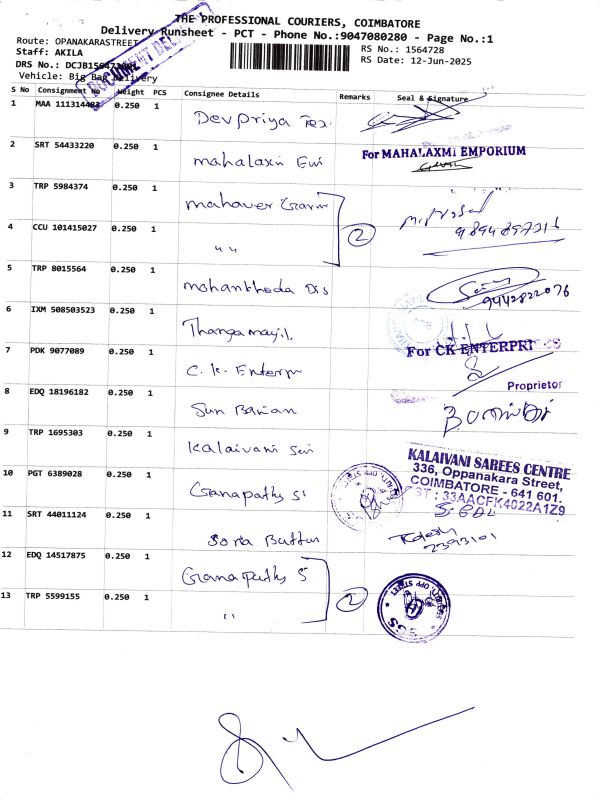 THE PROFESSIONAL COURIERS, COIMBATORE
Delivery Runsheet - PCT - Phone No.:9047080280 - Page No.:1
Route: OPANAKARASTREET
RS No.: 1564728
Staff: AKILA
RS Date: 12-Jun-2025
DRS No.:
Vehicle: Big Bag Delivery
DOCUMENT
S No Consignment No Weight PCS Consignee Details Remarks Seal & Signature
1 MAA 0.250 1 Devpriya Tex.
2 SRT 54433220 0.250 1 mahalaxmi
For MAHALAXMI EMPORIUM
3 TRP 5984374 0.250 1 mahaveer
4 CCU 101415027 0.250 1 " " 2
9894897216
5 TRP 8015564 0.250 1 Dis
9442822076
6 IXM 508503523 0.250 1 Thangamayil.
7 PDK 9077089 0.250 1 C.K. Enterpr
For CK ENTERPRISES
Proprietor
8 EDQ 18196182 0.250 1 Sun Banian
9 TRP 1695303 0.250 1 Kalaivani
KALAIVANI SAREES CENTRE
336, Oppanakara Street,
COIMBATORE - 641 601.
ST : 33AACFK4022A1Z9
10 PGT 6389028 0.250 1 Ganapathy S
11 SRT 44011124 0.250 1 Button
2393101
12 EDQ 14517875 0.250 1 Ganapathy S
13 TRP 5599155 0.250 1 " 2
SGS